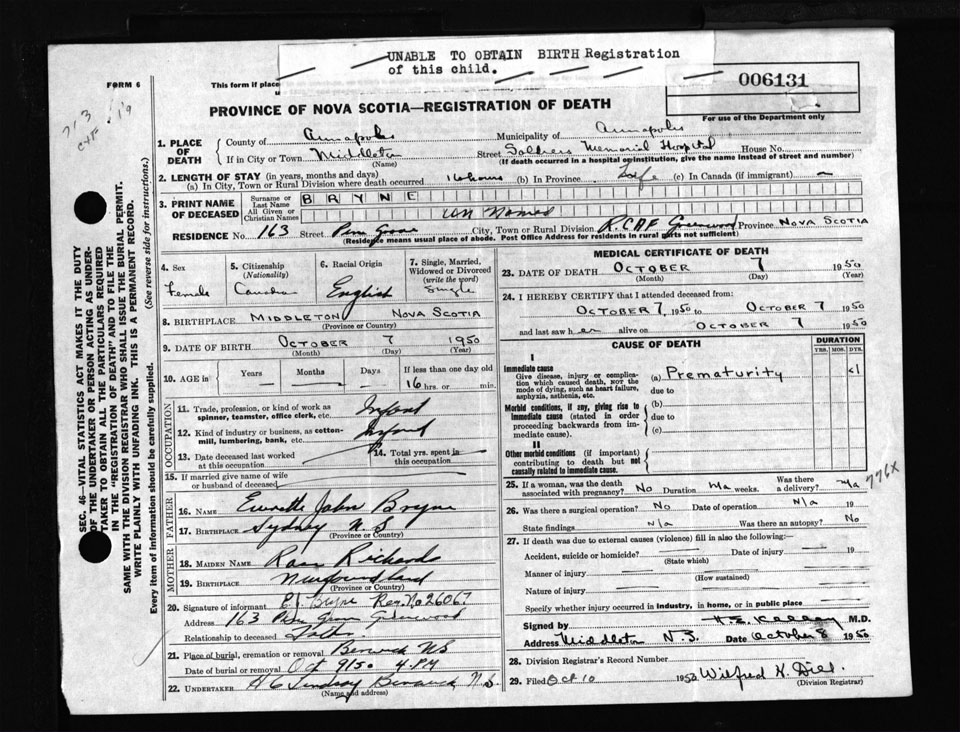 UNABLE TO OBTAIN BIRTH Registration
of this child.
FORM 6
This form if place
006131
For use of the Department only
PROVINCE OF NOVA SCOTIA—REGISTRATION OF DEATH
1. PLACE OF DEATH
County of Annapolis
Municipality of Annapolis
If in City or Town Middleton Street Soldiers Memorial Hospital House No.
(Name) (If death occurred in a hospital or institution, give the name instead of street and number)
2. LENGTH OF STAY (in years, months and days)
(a) In City, Town or Rural Division where death occurred 16 hours (b) In Province Life (c) In Canada (if immigrant) —
3. PRINT NAME OF DECEASED
Surname or Last Name BRYNE
All Given or Christian Names un Named
RESIDENCE No. 163 Street Pine Grove City, Town or Rural Division R.CAF Greenwood Province NOVA SCOTIA
(Residence means usual place of abode. Post Office Address for residents in rural parts not sufficient)
4. Sex Female
5. Citizenship (Nationality) Canadian
6. Racial Origin English
7. Single, Married, Widowed or Divorced (write the word) Single
8. BIRTHPLACE MIDDLETON NOVA SCOTIA
(Province or Country)
9. DATE OF BIRTH OCTOBER 7 1950
(Month) (Day) (Year)
10. AGE in Years Months Days If less than one day old
16 hrs. or min.
OCCUPATION
11. Trade, profession, or kind of work as spinner, teamster, office clerk, etc. Infant
12. Kind of industry or business, as cotton-mill, lumbering, bank, etc. Infant
13. Date deceased last worked at this occupation
14. Total yrs. spent in this occupation
15. If married give name of wife or husband of deceased
FATHER
16. NAME John Bryne
17. BIRTHPLACE Sydney N.S
(Province or Country)
MOTHER
18. MAIDEN NAME Richards
19. BIRTHPLACE Newfoundland
(Province or Country)
20. Signature of informant E.J. Bryne Reg. No 26067
Address 163 Pine Grove Greenwood
Relationship to deceased Father
21. Place of burial, cremation or removal Berwick NS
Date of burial or removal Oct 9 1950 4. PM
22. UNDERTAKER Lindsay Berwick N.S.
(Name and address)
MEDICAL CERTIFICATE OF DEATH
23. DATE OF DEATH OCTOBER 7 1950
(Month) (Day) (Year)
24. I HEREBY CERTIFY that I attended deceased from
OCTOBER 7, 1950 to OCTOBER 7 1950
and last saw her alive on OCTOBER 7 1950
CAUSE OF DEATH
DURATION
YRS. MOS. DYS.
I
Immediate cause
Give disease, injury or complication which caused death, NOT the mode of dying, such as heart failure, asphyxia, asthenia, etc.
(a) Prematurity <1
due to
Morbid conditions, if any, giving rise to immediate cause (stated in order proceeding backwards from immediate cause).
(b)
due to
(c)
II
Other morbid conditions (if important) contributing to death but not causally related to immediate cause.
25. If a woman, was the death associated with pregnancy? No Duration n/a weeks. Was there a delivery? n/a
776X
26. Was there a surgical operation? No Date of operation N/a 19
State findings n/a Was there an autopsy? No
27. If death was due to external causes (violence) fill in also the following:—
Accident, suicide or homicide? Date of injury 19
(State which)
Manner of injury
(How sustained)
Nature of injury
Specify whether injury occurred in industry, in home, or in public place
Signed by M.D.
Address Middleton N.S. Date October 8 1950
28. Division Registrar's Record Number
29. Filed Oct 10 1950 Wilfred K. Dill.
(Division Registrar)
SEC. 46—VITAL STATISTICS ACT MAKES IT THE DUTY
OF THE UNDERTAKER OR PERSON ACTING AS UNDER-
TAKER TO OBTAIN ALL THE PARTICULARS REQUIRED
IN THE "REGISTRATION OF DEATH" AND TO FILE THE
SAME WITH THE DIVISION REGISTRAR WHO SHALL ISSUE THE BURIAL PERMIT.
WRITE PLAINLY WITH UNFADING INK. THIS IS A PERMANENT RECORD.
Every item of information should be carefully supplied. (See reverse side for instructions.)